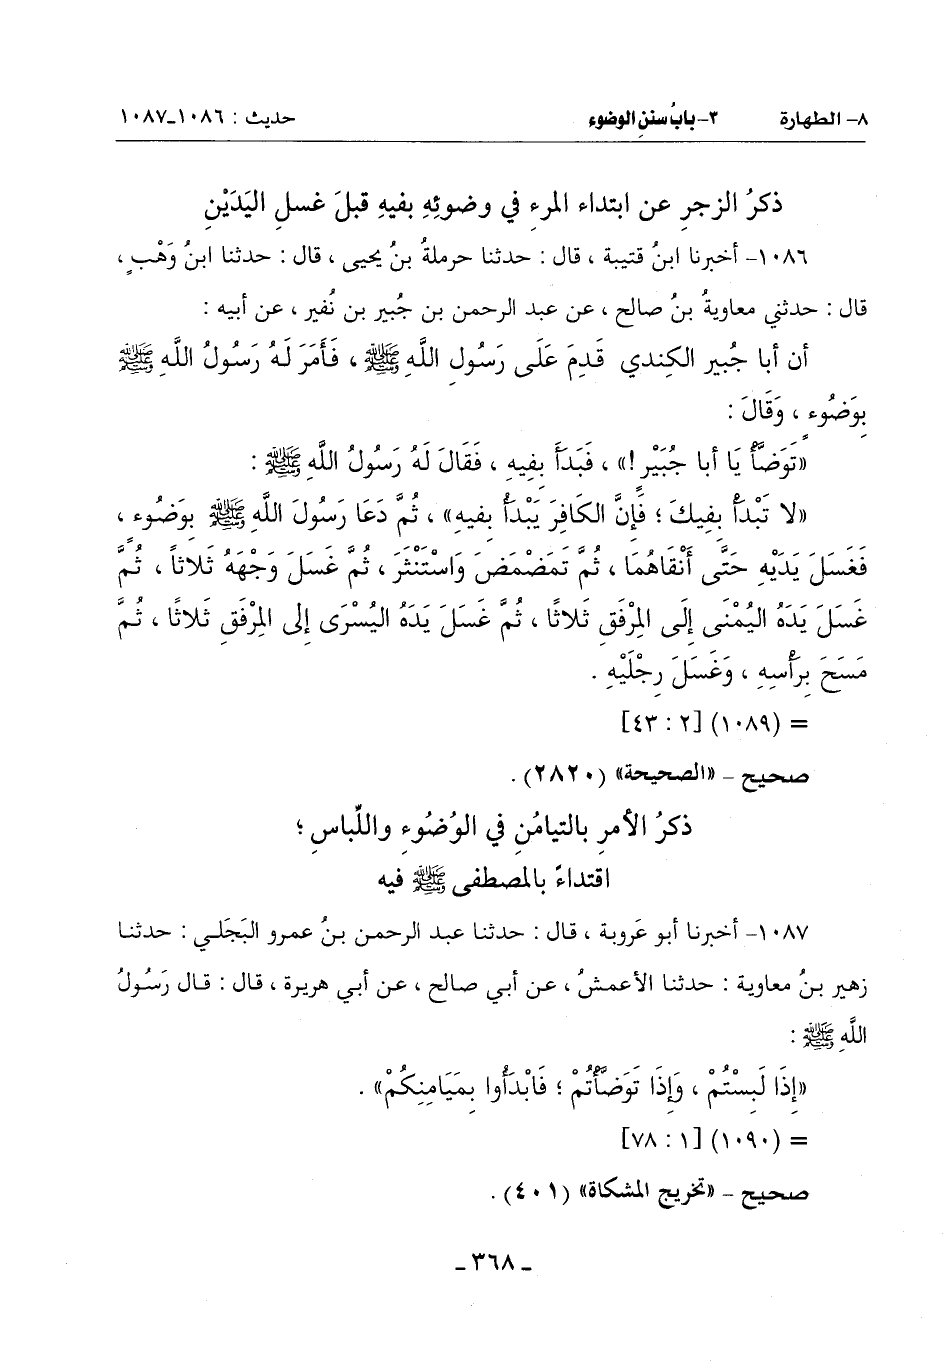 ٨- الطهارة ٣- بابُ سننِ الوضوء حديث : ١٠٨٦-١٠٨٧
ذكرُ الزجرِ عن ابتداء المرءِ في وضوئِهِ بفيهِ قبلَ غسلِ اليَدَيْنِ
١٠٨٦- أخبرنا ابنُ قتيبة ، قال : حدثنا حرملةُ بنُ يحيى ، قال : حدثنا ابنُ وَهْبٍ ،
قال : حدثني معاويةُ بنُ صالح ، عن عبد الرحمن بن جُبير بن نُفير ، عن أبيه :
أن أبا جُبير الكِندي قَدِمَ عَلَى رَسُولِ اللَّهِ ﷺ ، فَأَمَرَ لَهُ رَسُولُ اللَّهِ ﷺ
بِوَضُوءٍ ، وَقَالَ :
«تَوَضَّأْ يَا أبا جُبَيْرٍ !» ، فَبَدَأَ بِفِيهِ ، فَقَالَ لَهُ رَسُولُ اللَّهِ ﷺ :
«لا تَبْدَأْ بِفِيكَ ؛ فَإِنَّ الكَافِرَ يَبْدَأُ بِفِيهِ» ، ثُمَّ دَعَا رَسُولَ اللَّهِ ﷺ بِوَضُوءٍ ،
فَغَسَلَ يَدَيْهِ حَتَّى أَنْقَاهُمَا ، ثُمَّ تَمَضْمَضَ وَاسْتَنْثَرَ ، ثُمَّ غَسَلَ وَجْهَهُ ثَلاثاً ، ثُمَّ
غَسَلَ يَدَهُ اليُمْنَى إِلَى المِرْفَقِ ثَلاثًا ، ثُمَّ غَسَلَ يَدَهُ اليُسْرَى إِلى المِرْفَقِ ثَلاثًا ، ثُمَّ
مَسَحَ بِرَأْسِهِ ، وَغَسَلَ رِجْلَيْهِ .
= (١٠٨٩) [٢ : ٤٣]
صحيح - «الصحيحة» (٢٨٢٠) .
ذكرُ الأمرِ بالتيامُنِ في الوُضُوءِ واللِّباسِ ؛
اقتداءً بالمصطفى ﷺ فيه
١٠٨٧- أخبرنا أبو عَروبة ، قال : حدثنا عبد الرحمن بنُ عمرو البَجَلي : حدثنا
زهير بنُ معاوية : حدثنا الأعمشُ ، عن أبي صالح ، عن أبي هريرة ، قال : قال رَسُولُ
اللَّهِ ﷺ :
«إِذَا لَبِسْتُمْ ، وَإِذَا تَوَضَّأْتُمْ ؛ فَابْدَأُوا بِمَيَامِنِكُمْ» .
= (١٠٩٠) [١ : ٧٨]
صحيح - «تخريج المشكاة» (٤٠١) .
- ٣٦٨ -